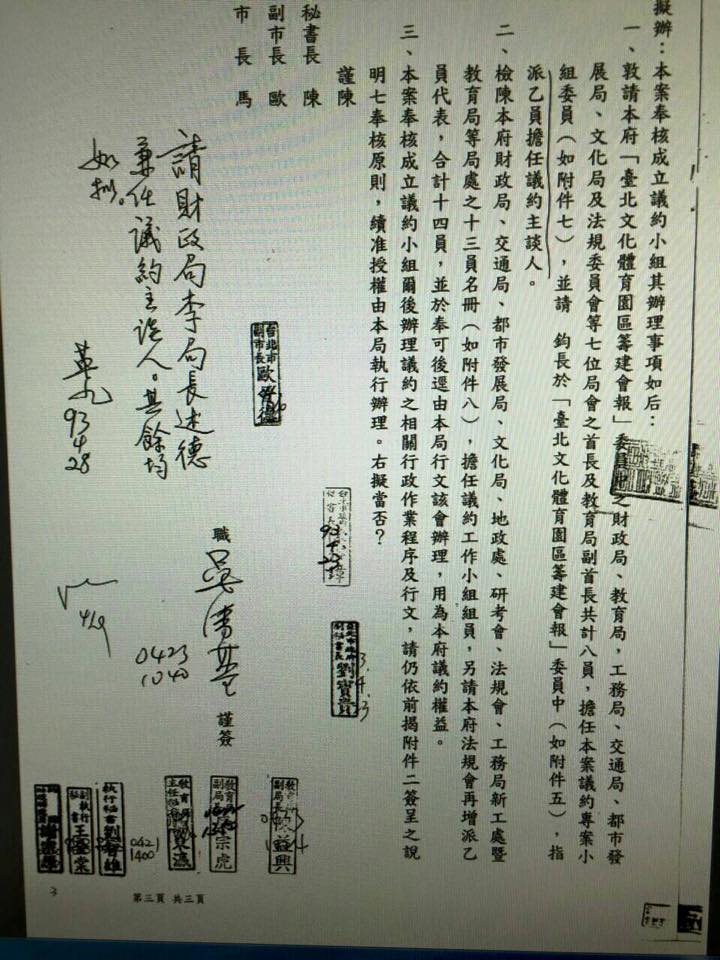 擬辦：本案奉核成立議約小組其辦理事項如后：
一、敦請本府「臺北文化體育園區籌建會報」委員 之財政局、教育局，工務局、交通局、都市發
展局、文化局及法規委員會等七位局會之首長及教育局副首長共計八員，擔任本案議約專案小
組委員（如附件七），並請 鈞長於「臺北文化體育園區籌建會報」委員中（如附件五），指
派乙員擔任議約主談人。
二、檢陳本府財政局、交通局、都市發展局、文化局、地政處、研考會、法規會、工務局新工處暨
教育局等局處之十三員名冊（如附件八），擔任議約工作小組組員，另請本府法規會再增派乙
員代表，合計十四員，並於奉可後逕由本局行文該會辦理，用為本府議約權益。
三、本案奉核成立議約小組爾後辦理議約之相關行政作業程序及行文，請仍依前揭附件二簽呈之說
明七奉核原則，續准授權由本局執行辦理。右擬當否？
謹陳
秘書長 陳
副市長 歐
市長 馬
職 吳清基 謹簽
0423
1040
請財政局李局長述德
兼任議約主談人。其餘均
如擬。
英九
93
4
28
台北市
副市長
歐晉德
臺北市政府
副秘書長
劉寶貴
3.4.3
教育局
副局長
益興
教育局
副局長
宗虎
教育局
主任秘書
執行秘書
0421
1400
副執行
秘書
王 棠
第三頁 共三頁
3